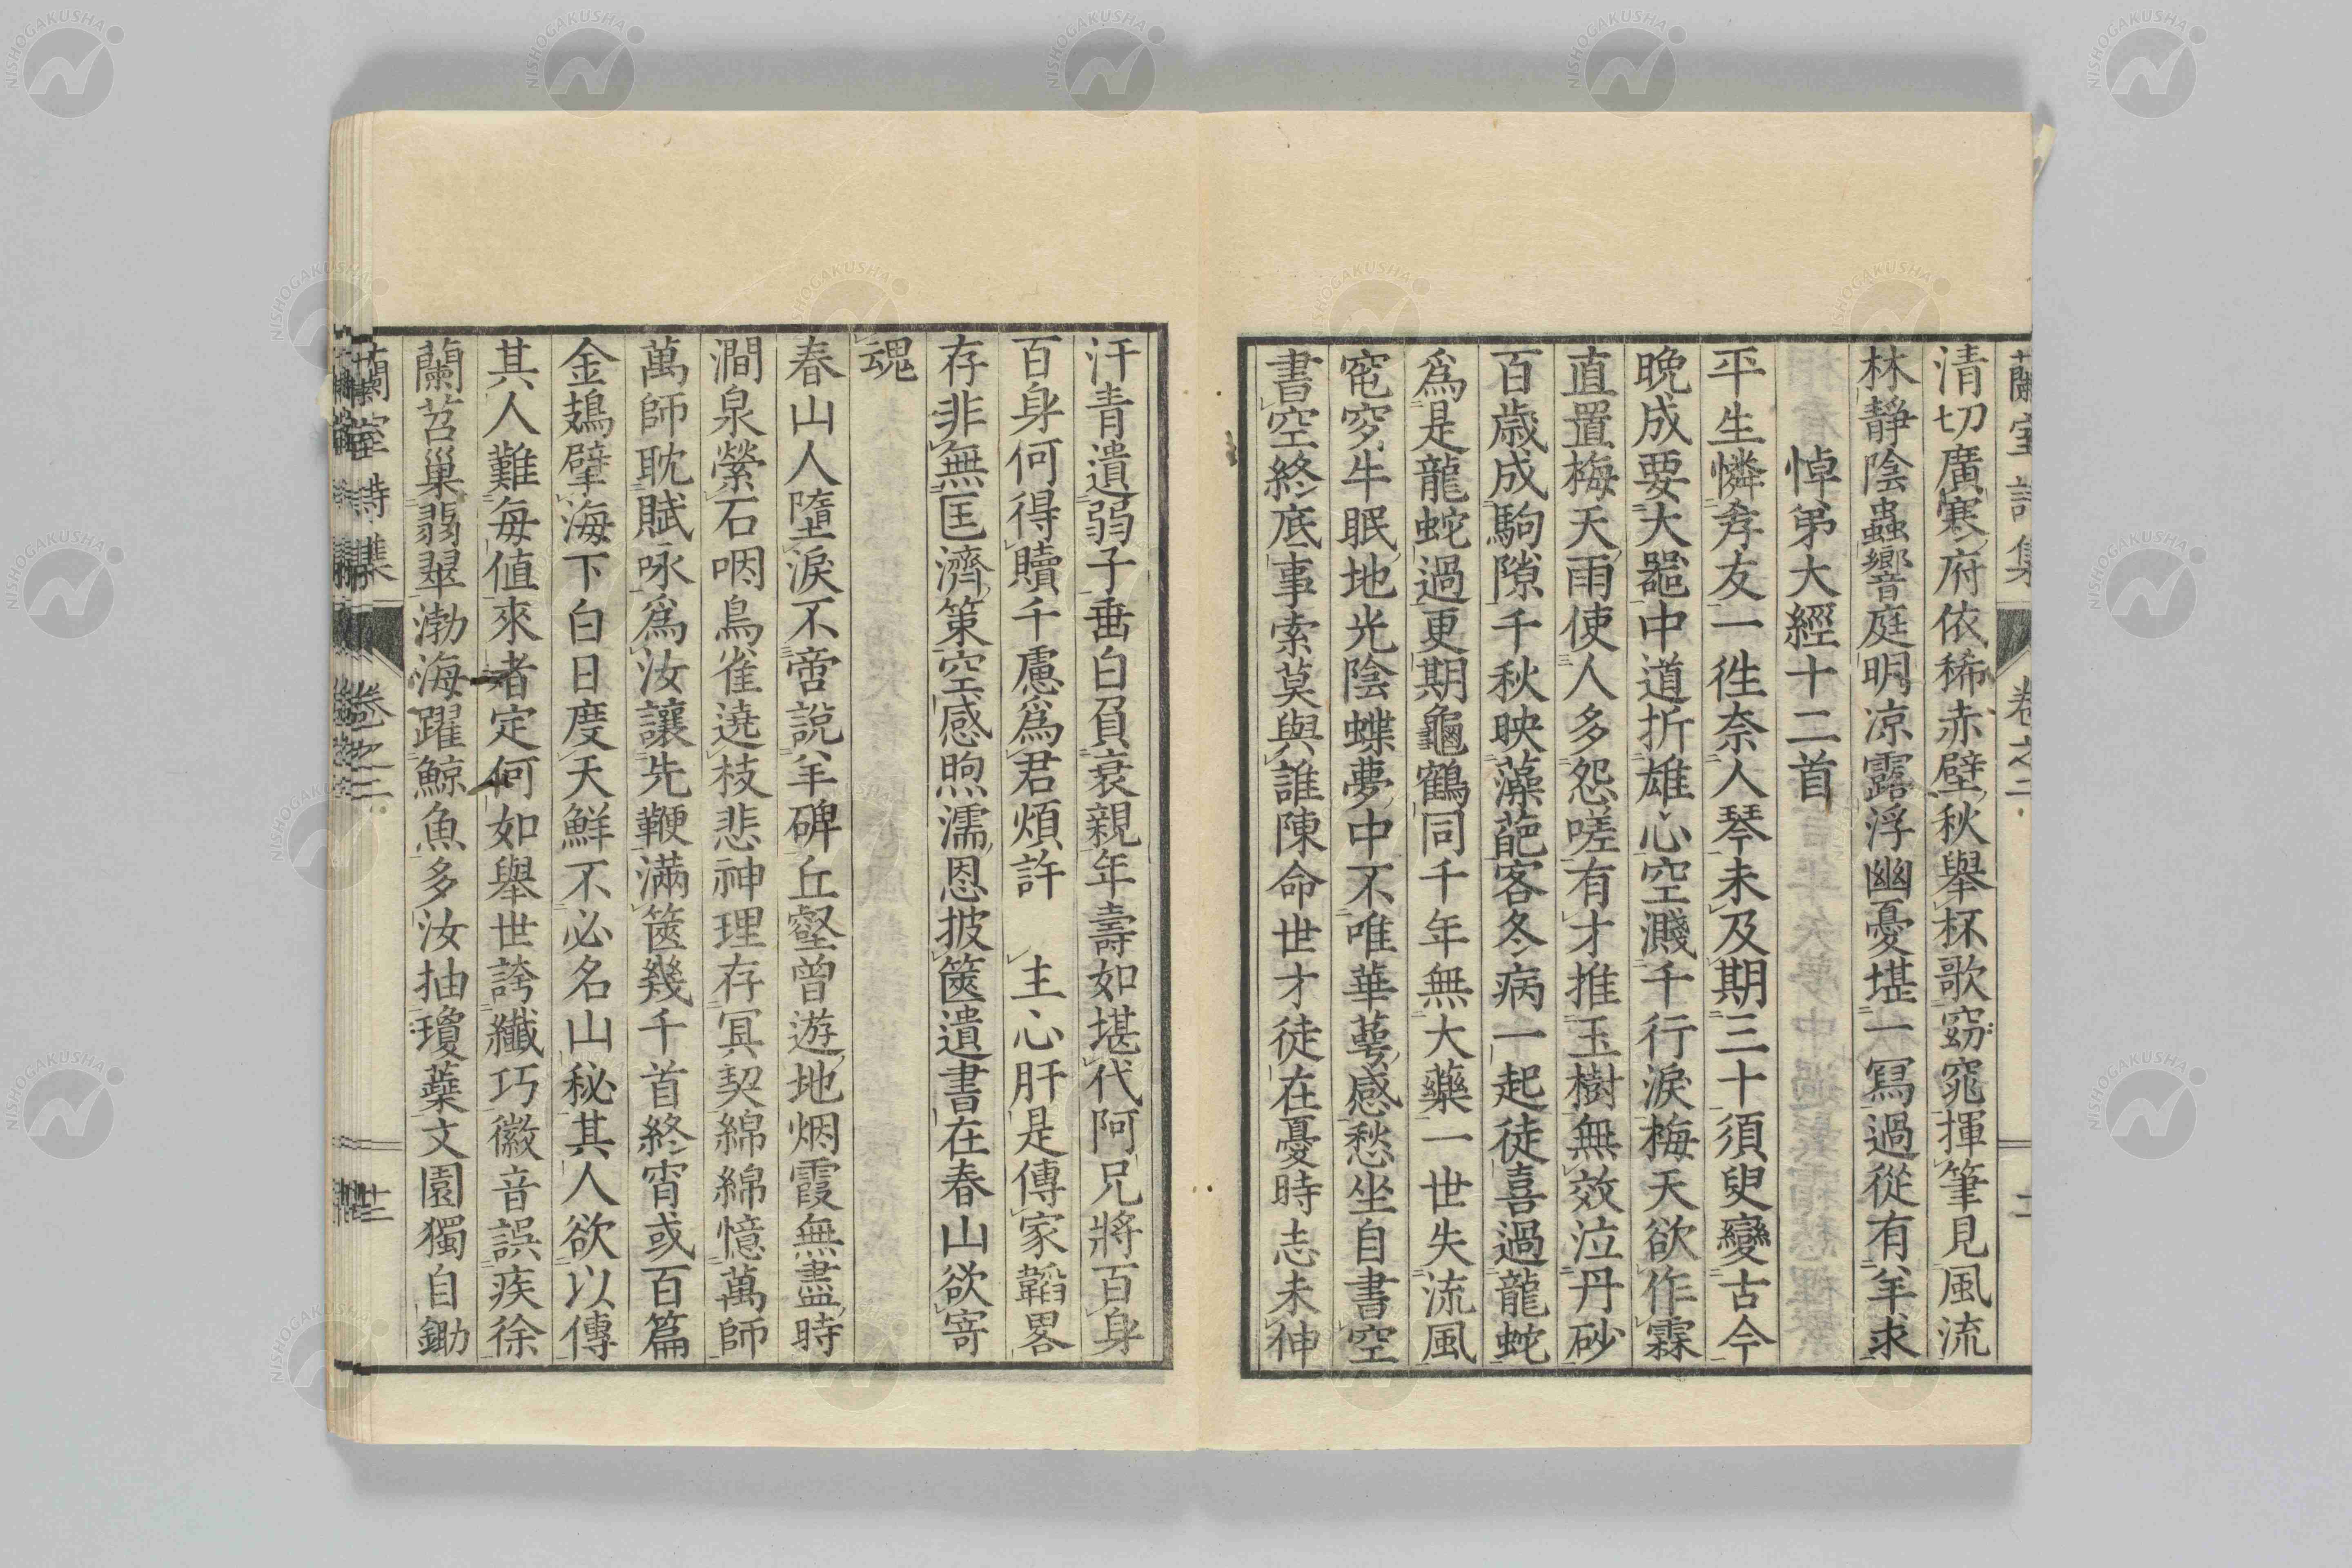 蘭室詩集 卷之二
清切廣寒府依稀赤壁秋舉杯歌窈窕揮筆見風流
林靜陰蟲響庭明凉露浮幽憂堪一冩過從有羊求
悼弟大經十二首
平生憐孝友一徃奈人琴未及期三十須臾變古今
晚成要大噐中道折雄心空濺千行淚梅天欲作霖
直置梅天雨使人多怨嗟有才推玉樹無效泣丹砂
百歲成駒隙千秋映藻葩客冬病一起徒喜過龍蛇
爲是龍蛇過更期龜鶴同千年無大藥一世失流風
窀穸牛眠地光陰蝶夢中不唯華萼感愁坐自書空
書空終底事索莫與誰陳命世才徒在憂時志未伸
汗青遺弱子垂白負衰親年壽如堪代阿兄將百身
百身何得贖千慮爲君煩許 主心肝是傳家韜畧
存非無匡濟策空感煦濡恩披篋遺書在春山欲寄
魂
春山人墮淚不啻說羊碑丘壑曾遊地烟霞無盡時
澗泉縈石咽鳥雀遶枝悲神理存冥契綿綿憶萬師
萬師耽賦咏爲汝讓先鞭滿篋幾千首終宵或百篇
金鳷擘海下白日度天鮮不必名山秘其人欲以傳
其人難每值來者定何如舉世誇纖巧徽音誤疾徐
蘭苕巢翡翠渤海躍鯨魚多汝抽瓊蘂文園獨自鋤
蘭室詩集 卷之二